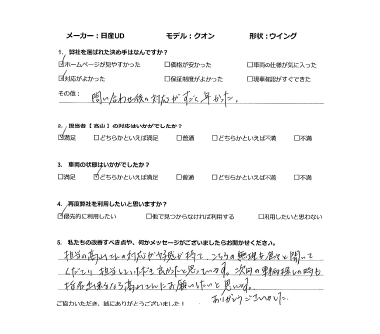 メーカー：日産UD　モデル：クオン　形状：ウイング
1. 弊社を選ばれた決め手はなんですか？
☑ホームページが見やすかった　□価格が安かった　□車両の仕様が気に入った
☑対応がよかった　□保証制度がよかった　□現車確認がすぐできた
その他：問い合わせ後の対応がすごく早かった。
2. 担当者【高山】の対応はいかがでしたか？
☑満足　□どちらかといえば満足　□普通　□どちらかといえば不満　□不満
3. 車両の状態はいかがでしたか？
□満足　☑どちらかといえば満足　□普通　□どちらかといえば不満　□不満
4. 再度弊社を利用したいと思いますか？
☑優先的に利用したい　□他で見つからなければ利用する　□利用したいと思わない
5. 私たちの改善すべき点や、何かメッセージがございましたらお聞かせください。
担当の高山さんの対応が好感が持て、こちらの無理を色々と聞いて
くださり 担当していただき良かったと思っています。次回の車輌探しの時も
高山さんにお願いしたいと思います。
ありがとうございました。
ご協力いただき、誠にありがとうございました！